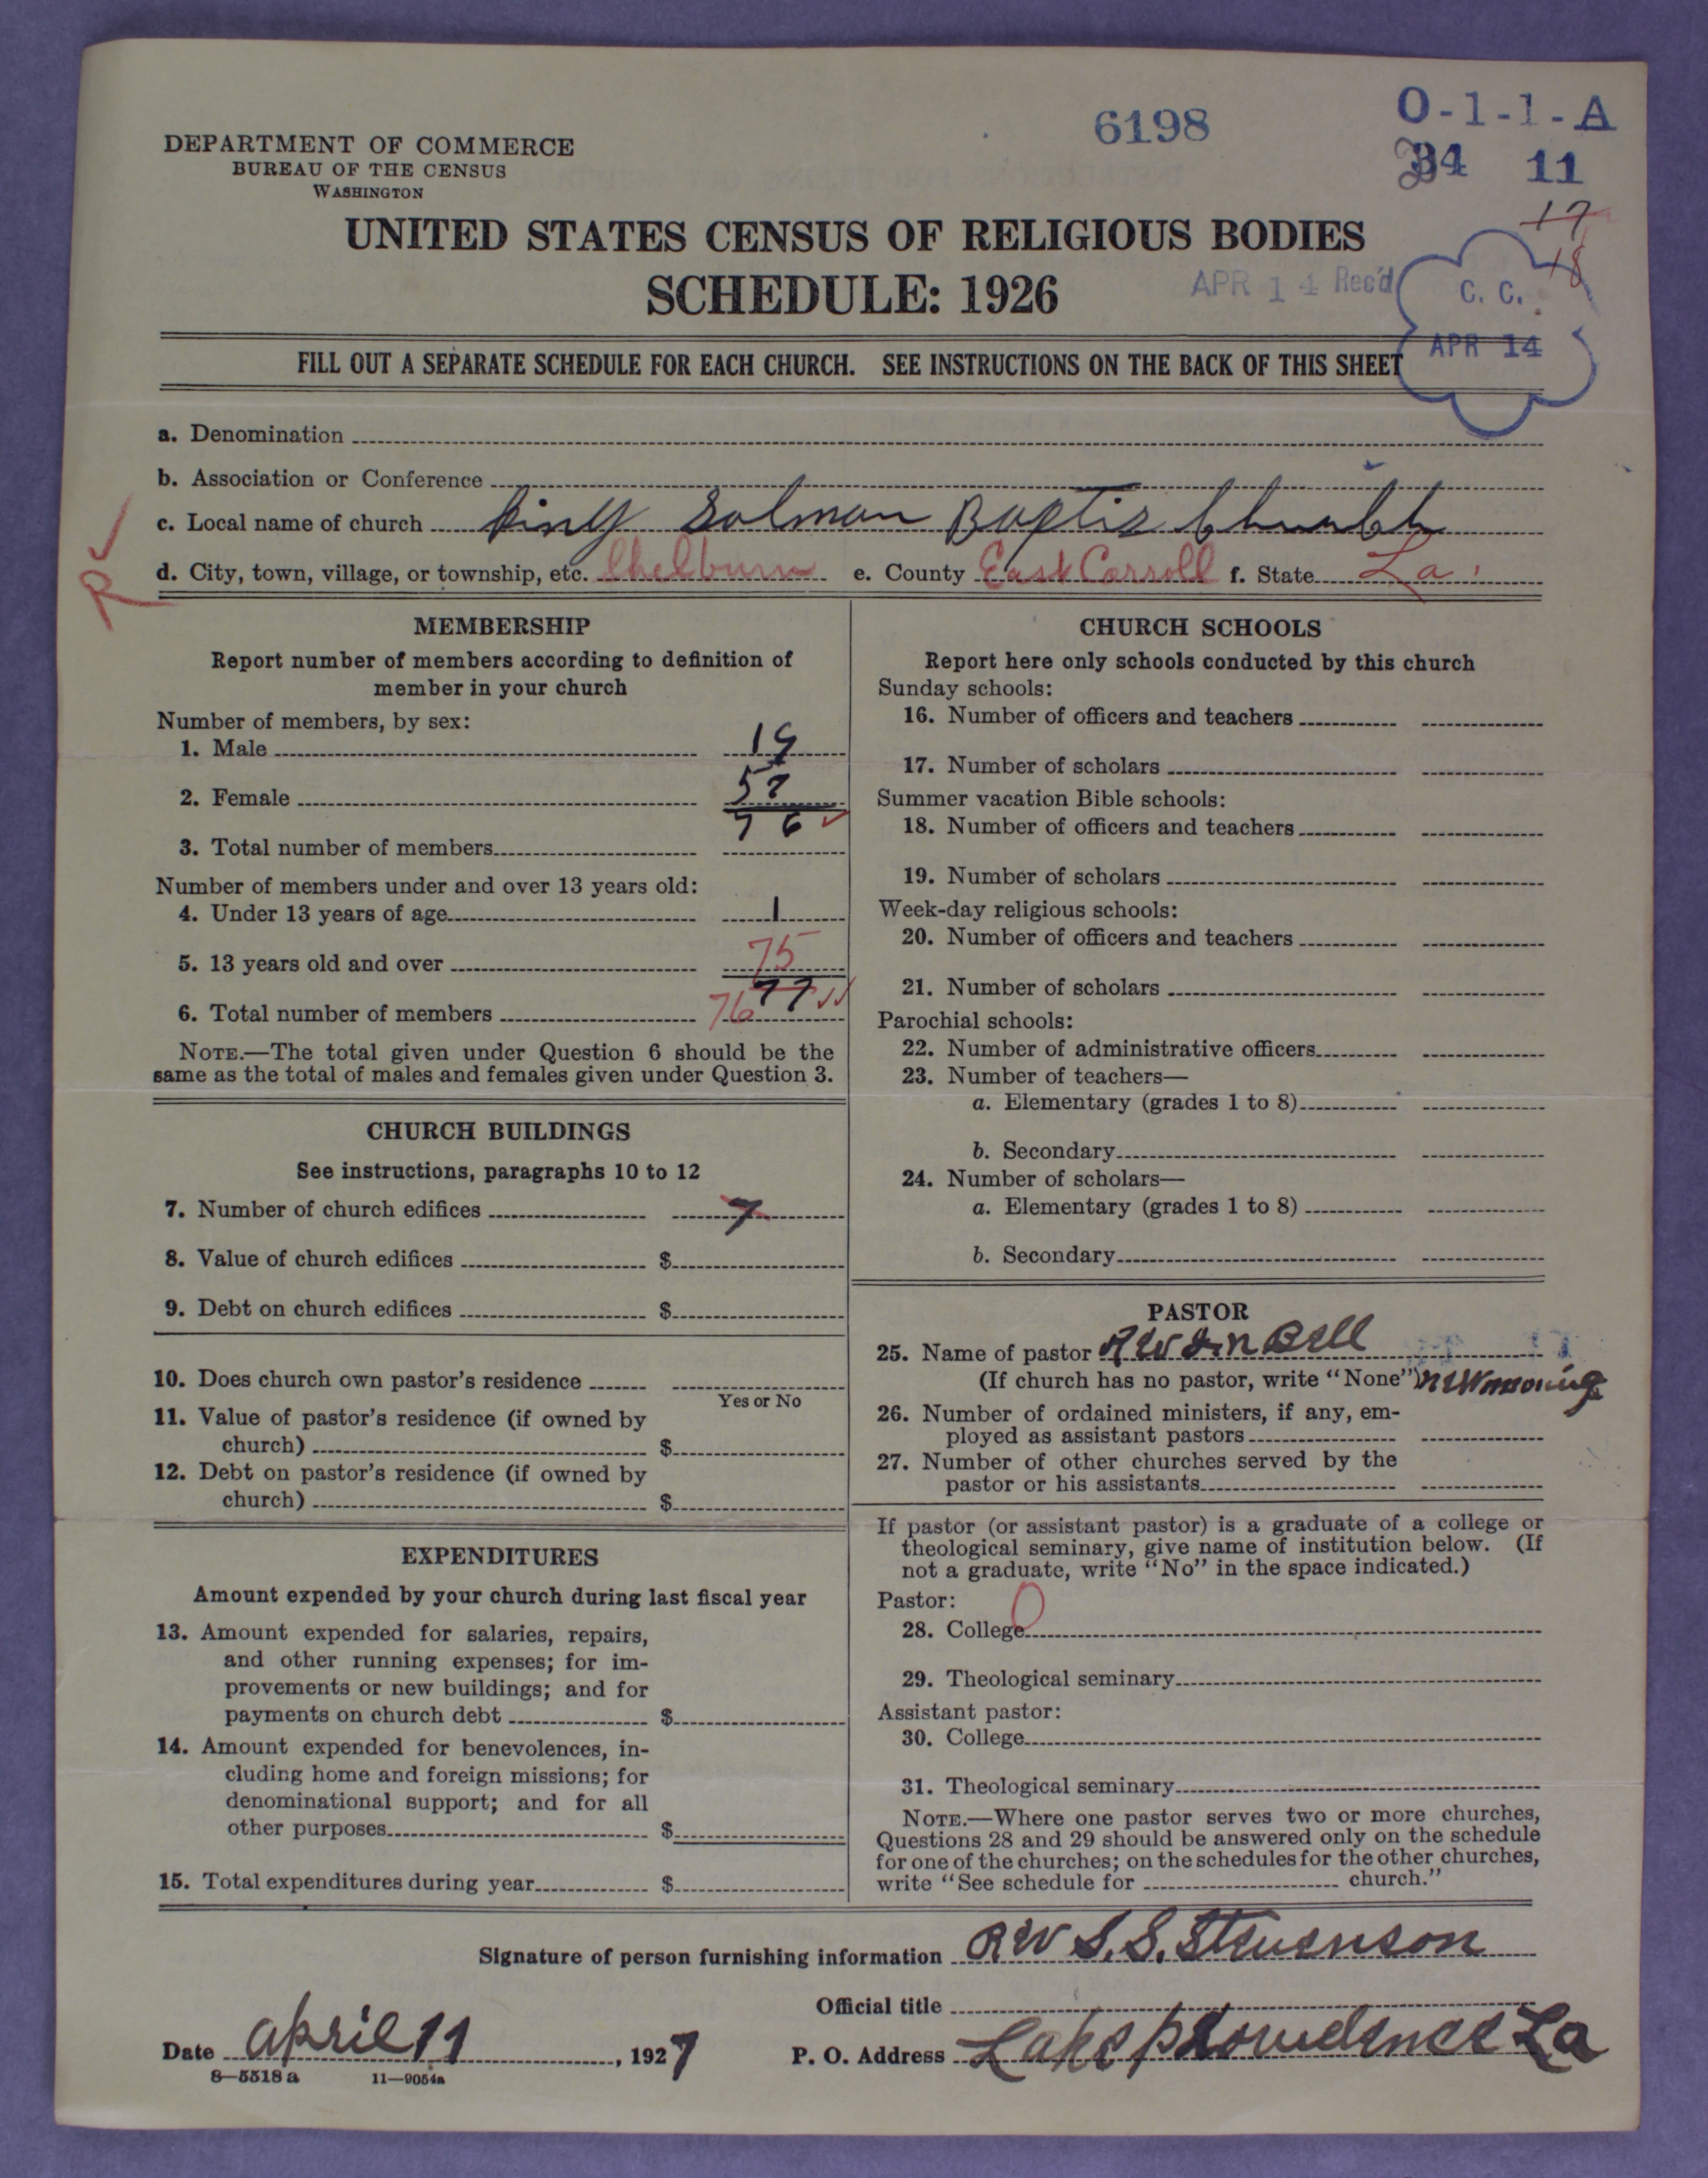 6198
O-1-1-A
34 11
17
18
DEPARTMENT OF COMMERCE
BUREAU OF THE CENSUS
WASHINGTON
UNITED STATES CENSUS OF RELIGIOUS BODIES
SCHEDULE: 1926
APR 14 Rec'd
C. C.
APR 14
FILL OUT A SEPARATE SCHEDULE FOR EACH CHURCH. SEE INSTRUCTIONS ON THE BACK OF THIS SHEET
a. Denomination
b. Association or Conference
c. Local name of church King Solman Baptis Church
d. City, town, village, or township, etc. Chelburn e. County East Carroll f. State La.
R
MEMBERSHIP
Report number of members according to definition of
member in your church
Number of members, by sex:
1. Male 19
2. Female 57
76
3. Total number of members
Number of members under and over 13 years old:
4. Under 13 years of age 1
5. 13 years old and over 75
6. Total number of members 76 77
NOTE.—The total given under Question 6 should be the
same as the total of males and females given under Question 3.
CHURCH BUILDINGS
See instructions, paragraphs 10 to 12
7. Number of church edifices 7
8. Value of church edifices $
9. Debt on church edifices $
10. Does church own pastor's residence
Yes or No
11. Value of pastor's residence (if owned by
church) $
12. Debt on pastor's residence (if owned by
church) $
EXPENDITURES
Amount expended by your church during last fiscal year
13. Amount expended for salaries, repairs,
and other running expenses; for im-
provements or new buildings; and for
payments on church debt $
14. Amount expended for benevolences, in-
cluding home and foreign missions; for
denominational support; and for all
other purposes $
15. Total expenditures during year $
CHURCH SCHOOLS
Report here only schools conducted by this church
Sunday schools:
16. Number of officers and teachers
17. Number of scholars
Summer vacation Bible schools:
18. Number of officers and teachers
19. Number of scholars
Week-day religious schools:
20. Number of officers and teachers
21. Number of scholars
Parochial schools:
22. Number of administrative officers
23. Number of teachers—
a. Elementary (grades 1 to 8)
b. Secondary
24. Number of scholars—
a. Elementary (grades 1 to 8)
b. Secondary
PASTOR
25. Name of pastor Bell
(If church has no pastor, write "None")
26. Number of ordained ministers, if any, em-
ployed as assistant pastors
27. Number of other churches served by the
pastor or his assistants
If pastor (or assistant pastor) is a graduate of a college or
theological seminary, give name of institution below. (If
not a graduate, write "No" in the space indicated.)
Pastor:
0
28. College
29. Theological seminary
Assistant pastor:
30. College
31. Theological seminary
NOTE.—Where one pastor serves two or more churches,
Questions 28 and 29 should be answered only on the schedule
for one of the churches; on the schedules for the other churches,
write "See schedule for church."
Signature of person furnishing information Rev S. S. Stevenson
Official title
Date april 11, 1927 P. O. Address Lake providence La
8—5518 a 11—9054a